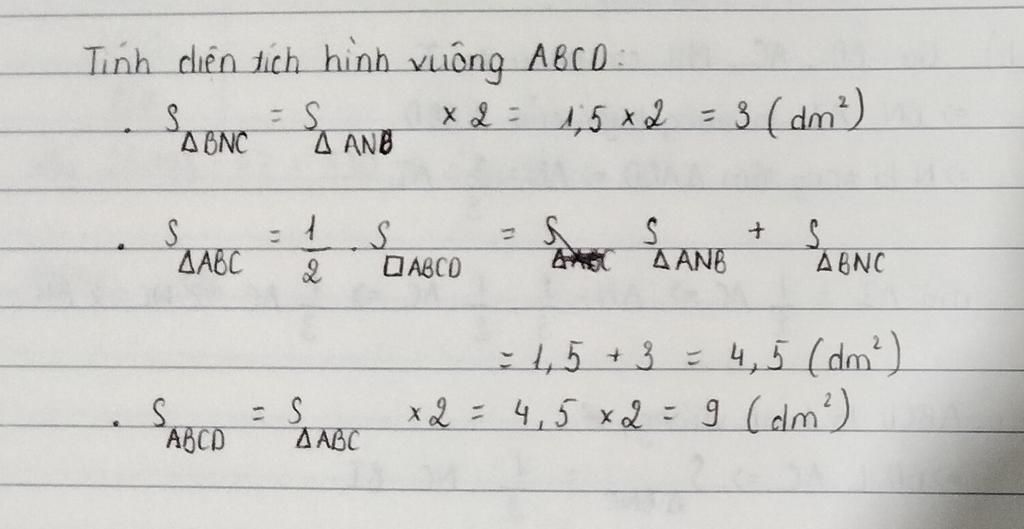 Tính diện tích hình vuông ABCD:
. S ΔBNC = S ΔANB × 2 = 1,5 × 2 = 3 (dm²)
. S ΔABC = 1/2 . S □ABCD = S ΔANB + S ΔBNC
= 1,5 + 3 = 4,5 (dm²)
. S ABCD = S ΔABC × 2 = 4,5 × 2 = 9 (dm²)